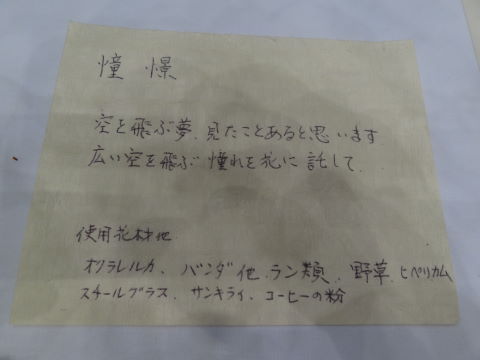 憧憬
空を飛ぶ夢、見たことあると思います
広い空を飛ぶ憧れを花に託して、
使用花材他
オクラレルカ、バンダ他ラン類、野草、ヒペリカム
スチールグラス、サンキライ、コーヒーの粉